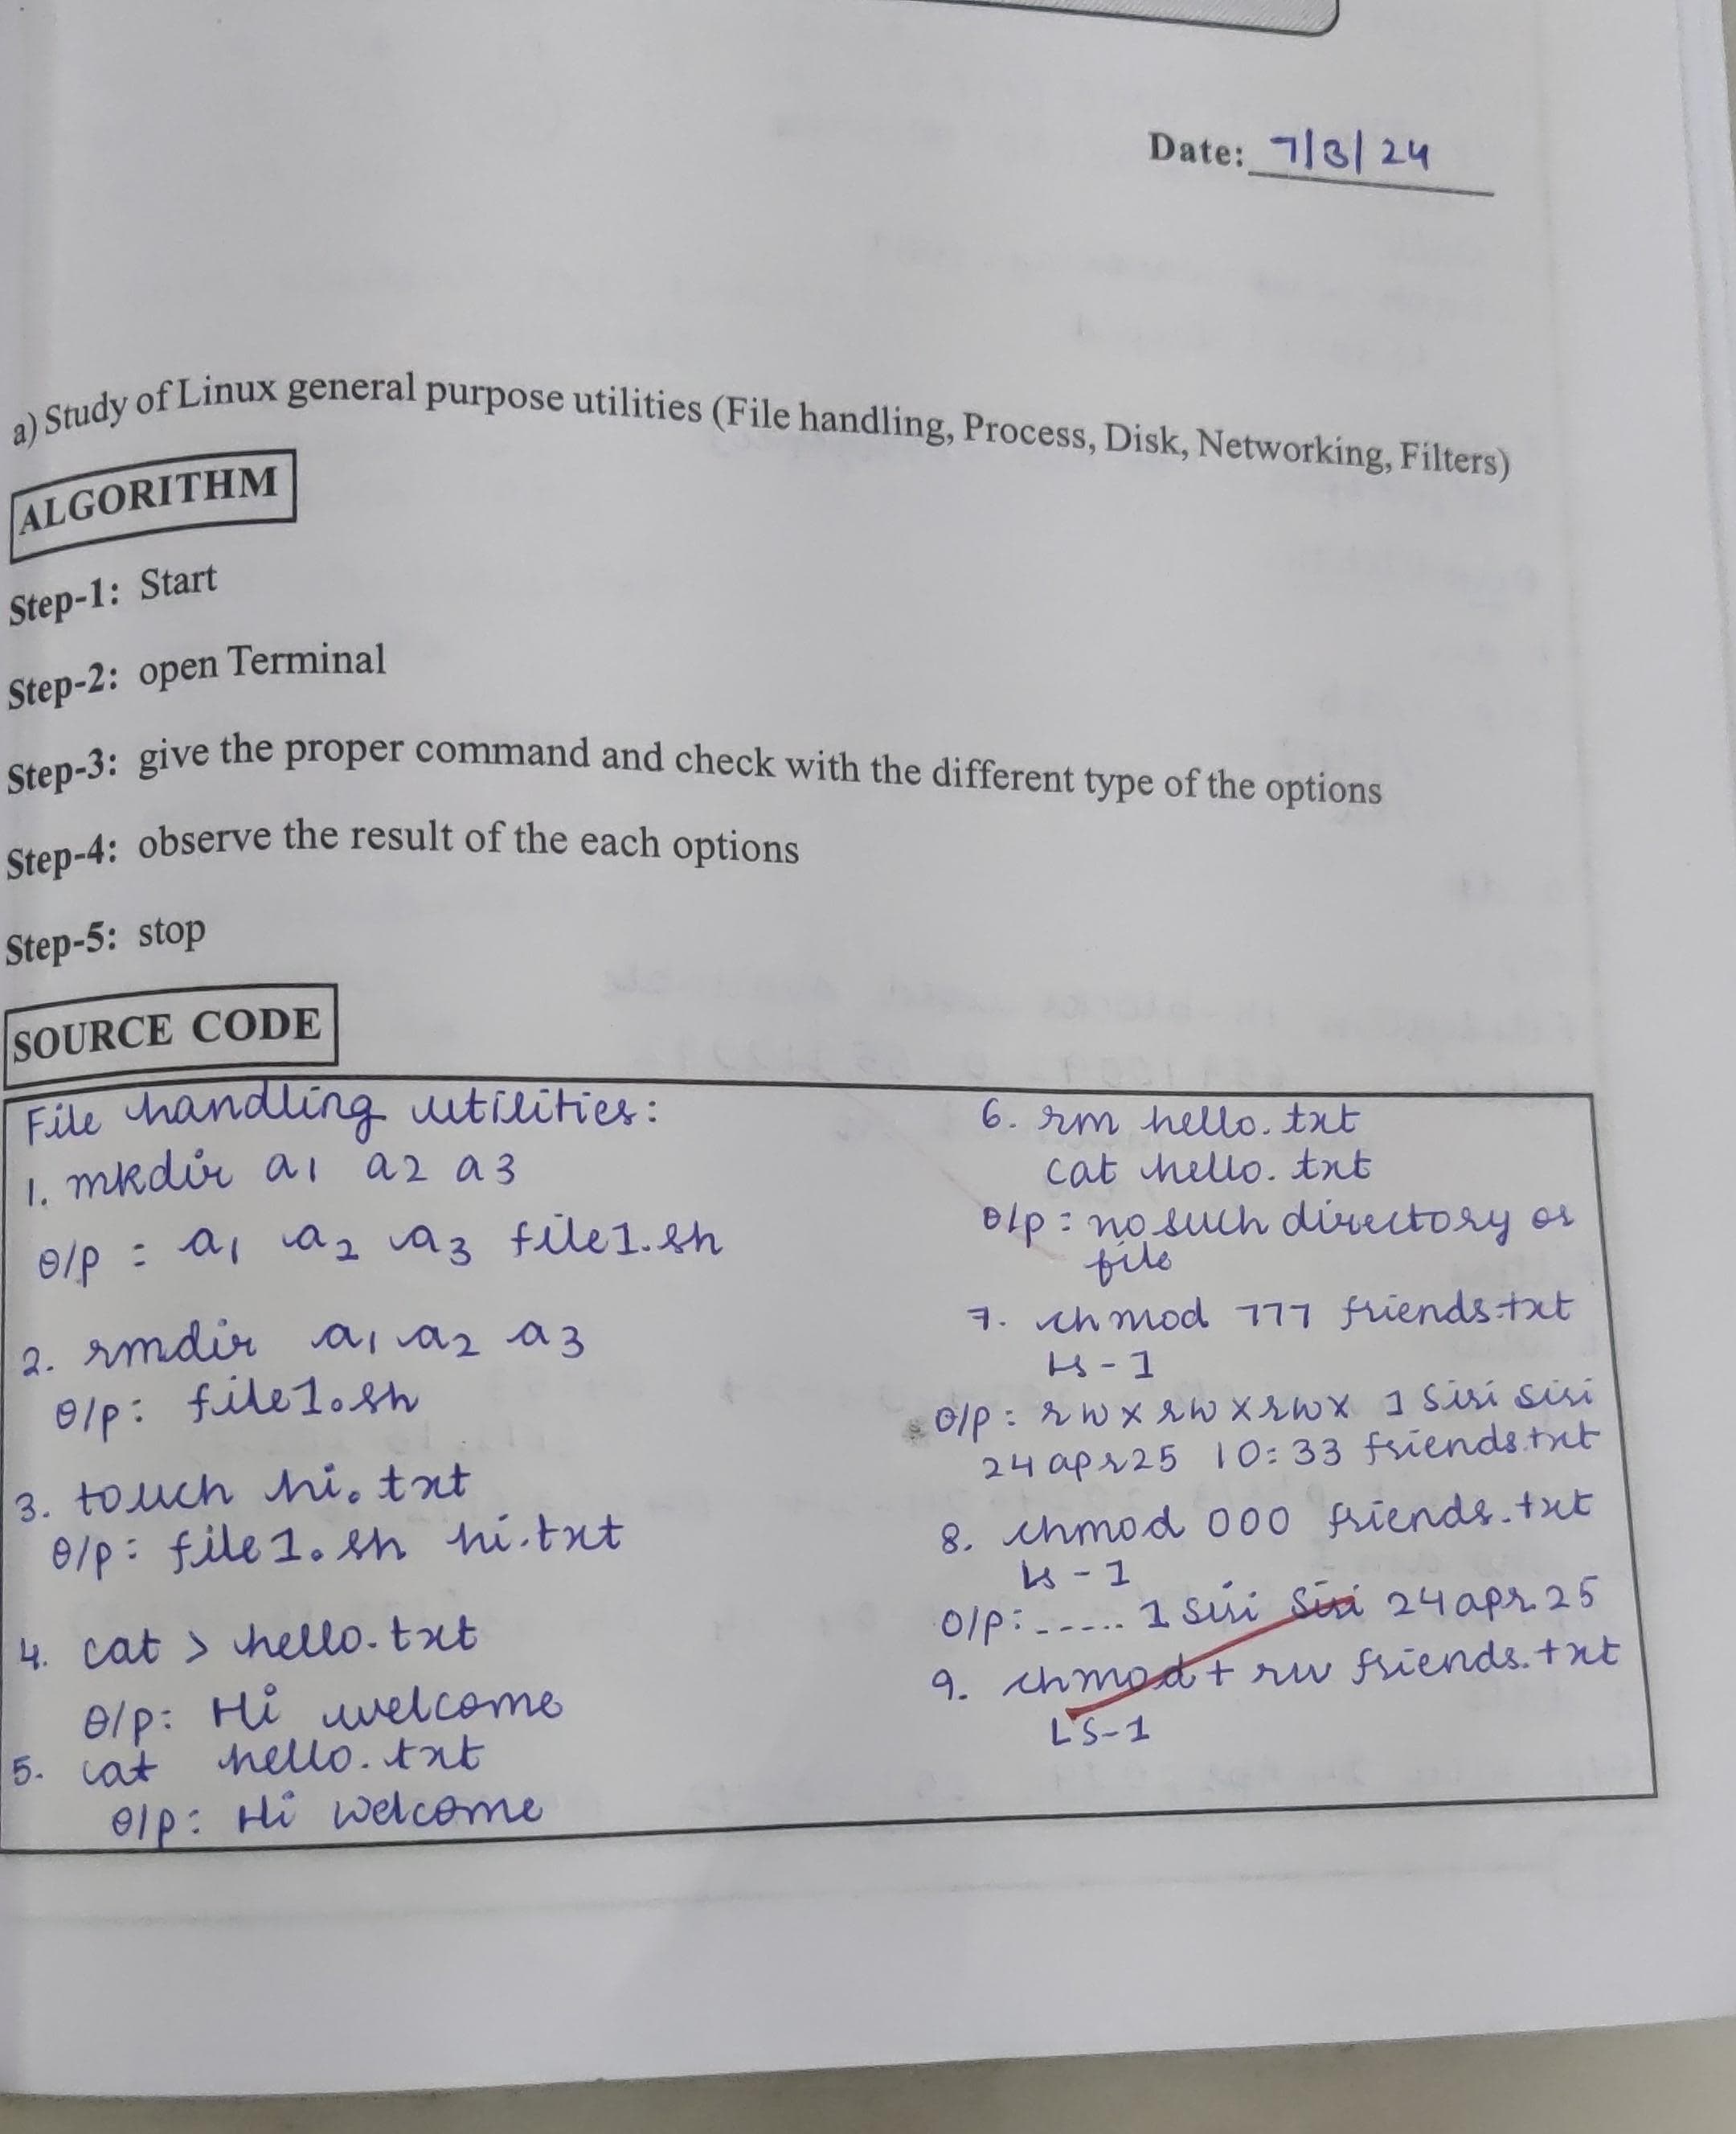 Date: 7/3/24
a) Study of Linux general purpose utilities (File handling, Process, Disk, Networking, Filters)
ALGORITHM
Step-1: Start
Step-2: open Terminal
Step-3: give the proper command and check with the different type of the options
Step-4: observe the result of the each options
Step-5: stop
SOURCE CODE
File handling utilities:
1. mkdir a1 a2 a3
o/p : a1 a2 a3 file1.sh
2. rmdir a1 a2 a3
o/p: file1.sh
3. touch hi.txt
o/p: file1.sh hi.txt
4. cat > hello.txt
o/p: Hi welcome
5. cat hello.txt
o/p: Hi welcome
6. rm hello.txt
cat hello.txt
o/p: no such directory or
file
7. chmod 777 friends.txt
ls -1
o/p: rwxrwxrwx 1 siri siri
24 apr 25 10:33 friends.txt
8. chmod 000 friends.txt
ls -1
o/p: ----- 1 siri siri 24 apr 25
9. chmod + rw friends.txt
LS-1